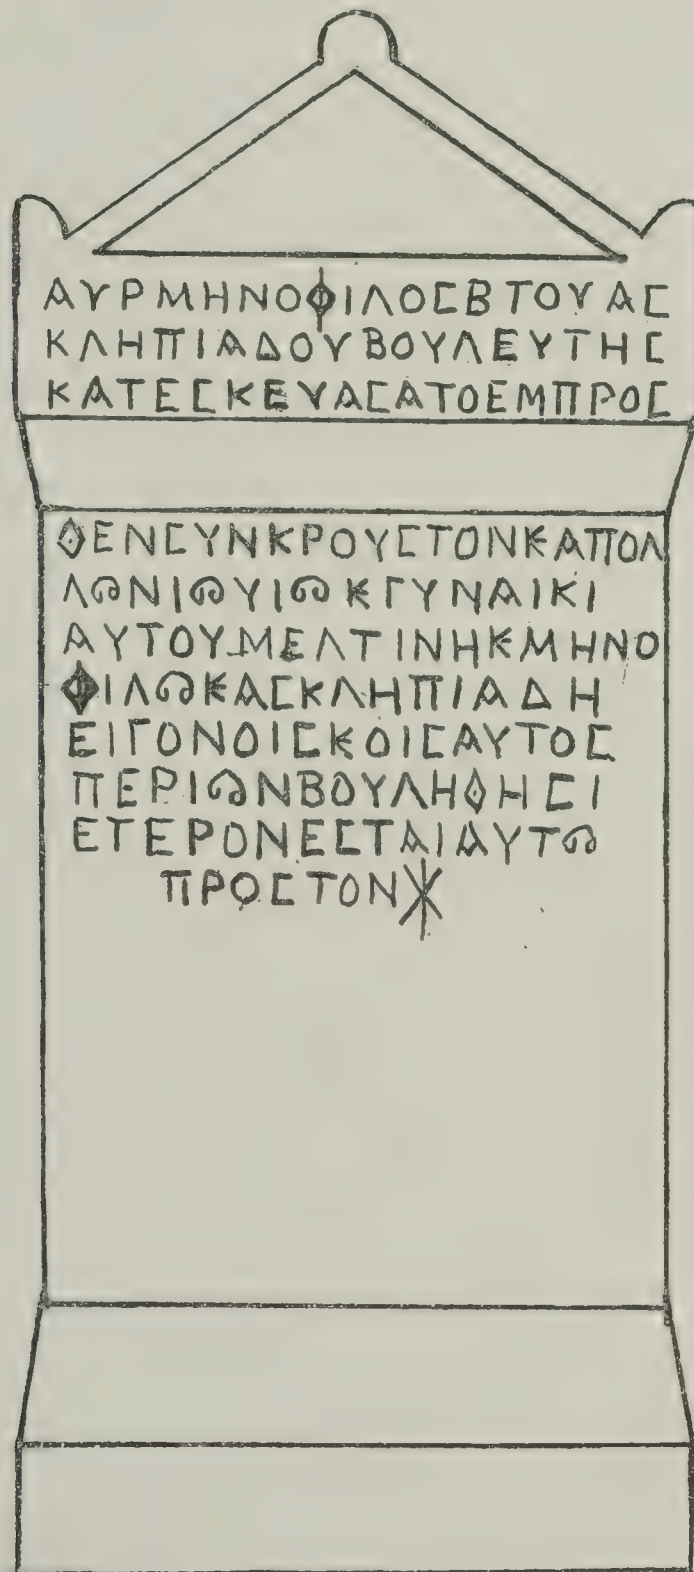 ΑΥΡΜΗΝΟΦΙΛΟϹΒΤΟΥΑϹ
ΚΛΗΠΙΑΔΟΥΒΟΥΛΕΥΤΗϹ
ΚΑΤΕϹΚΕΥΑϹΑΤΟΕΜΠΡΟϹ
ΘΕΝϹΥΝΚΡΟΥϹΤΟΝϏΑΠΟΛ
ΛΩΝΙΩΥΙΩϏΓΥΝΑΙΚΙ
ΑΥΤΟΥΜΕΛΤΙΝΗϏΜΗΝΟ
ΦΙΛΩϏΑϹΚΛΗΠΙΑΔΗ
ΕΙΓΟΝΟΙϹΚΟΙϹΑΥΤΟϹ
ΠΕΡΙΩΝΒΟΥΛΗΘΗϹΙ
ΕΤΕΡΟΝΕϹΤΑΙΑΥΤΩ
ΠΡΟϹΤΟΝ